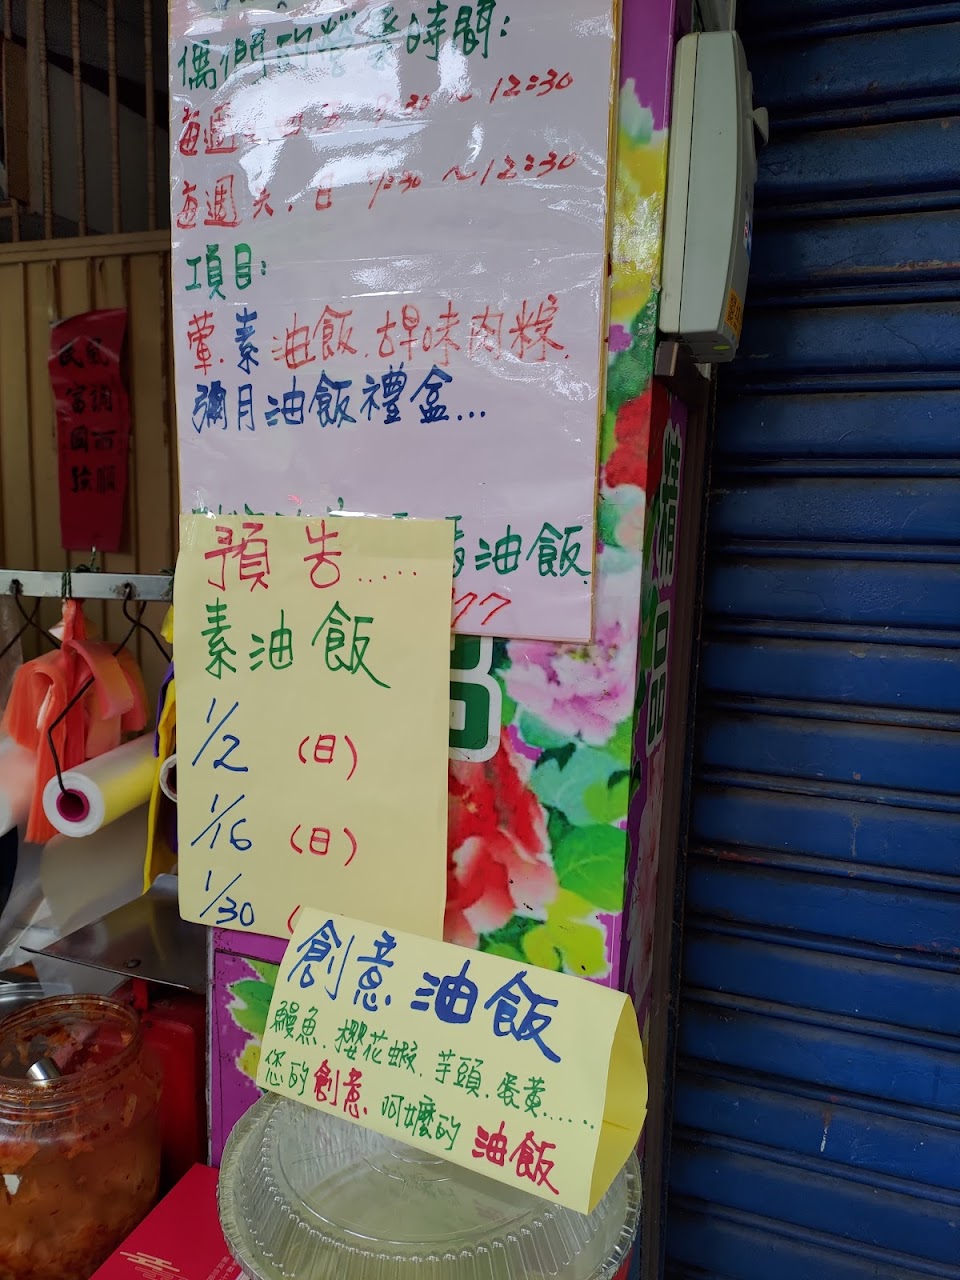 偶們的營業時間:
每週 ~12:30
每週六.日 7:30 ~12:30
項目:
葷.素油飯.古早味肉粽.
彌月油飯禮盒...
油飯
77
預告.....
素油飯
1/2 (日)
1/16 (日)
1/30 (
創意油飯
鰻魚.櫻花蝦.芋頭.蛋黃.....
您的創意 阿嬤的 油飯
精品
風調雨順
國泰民富